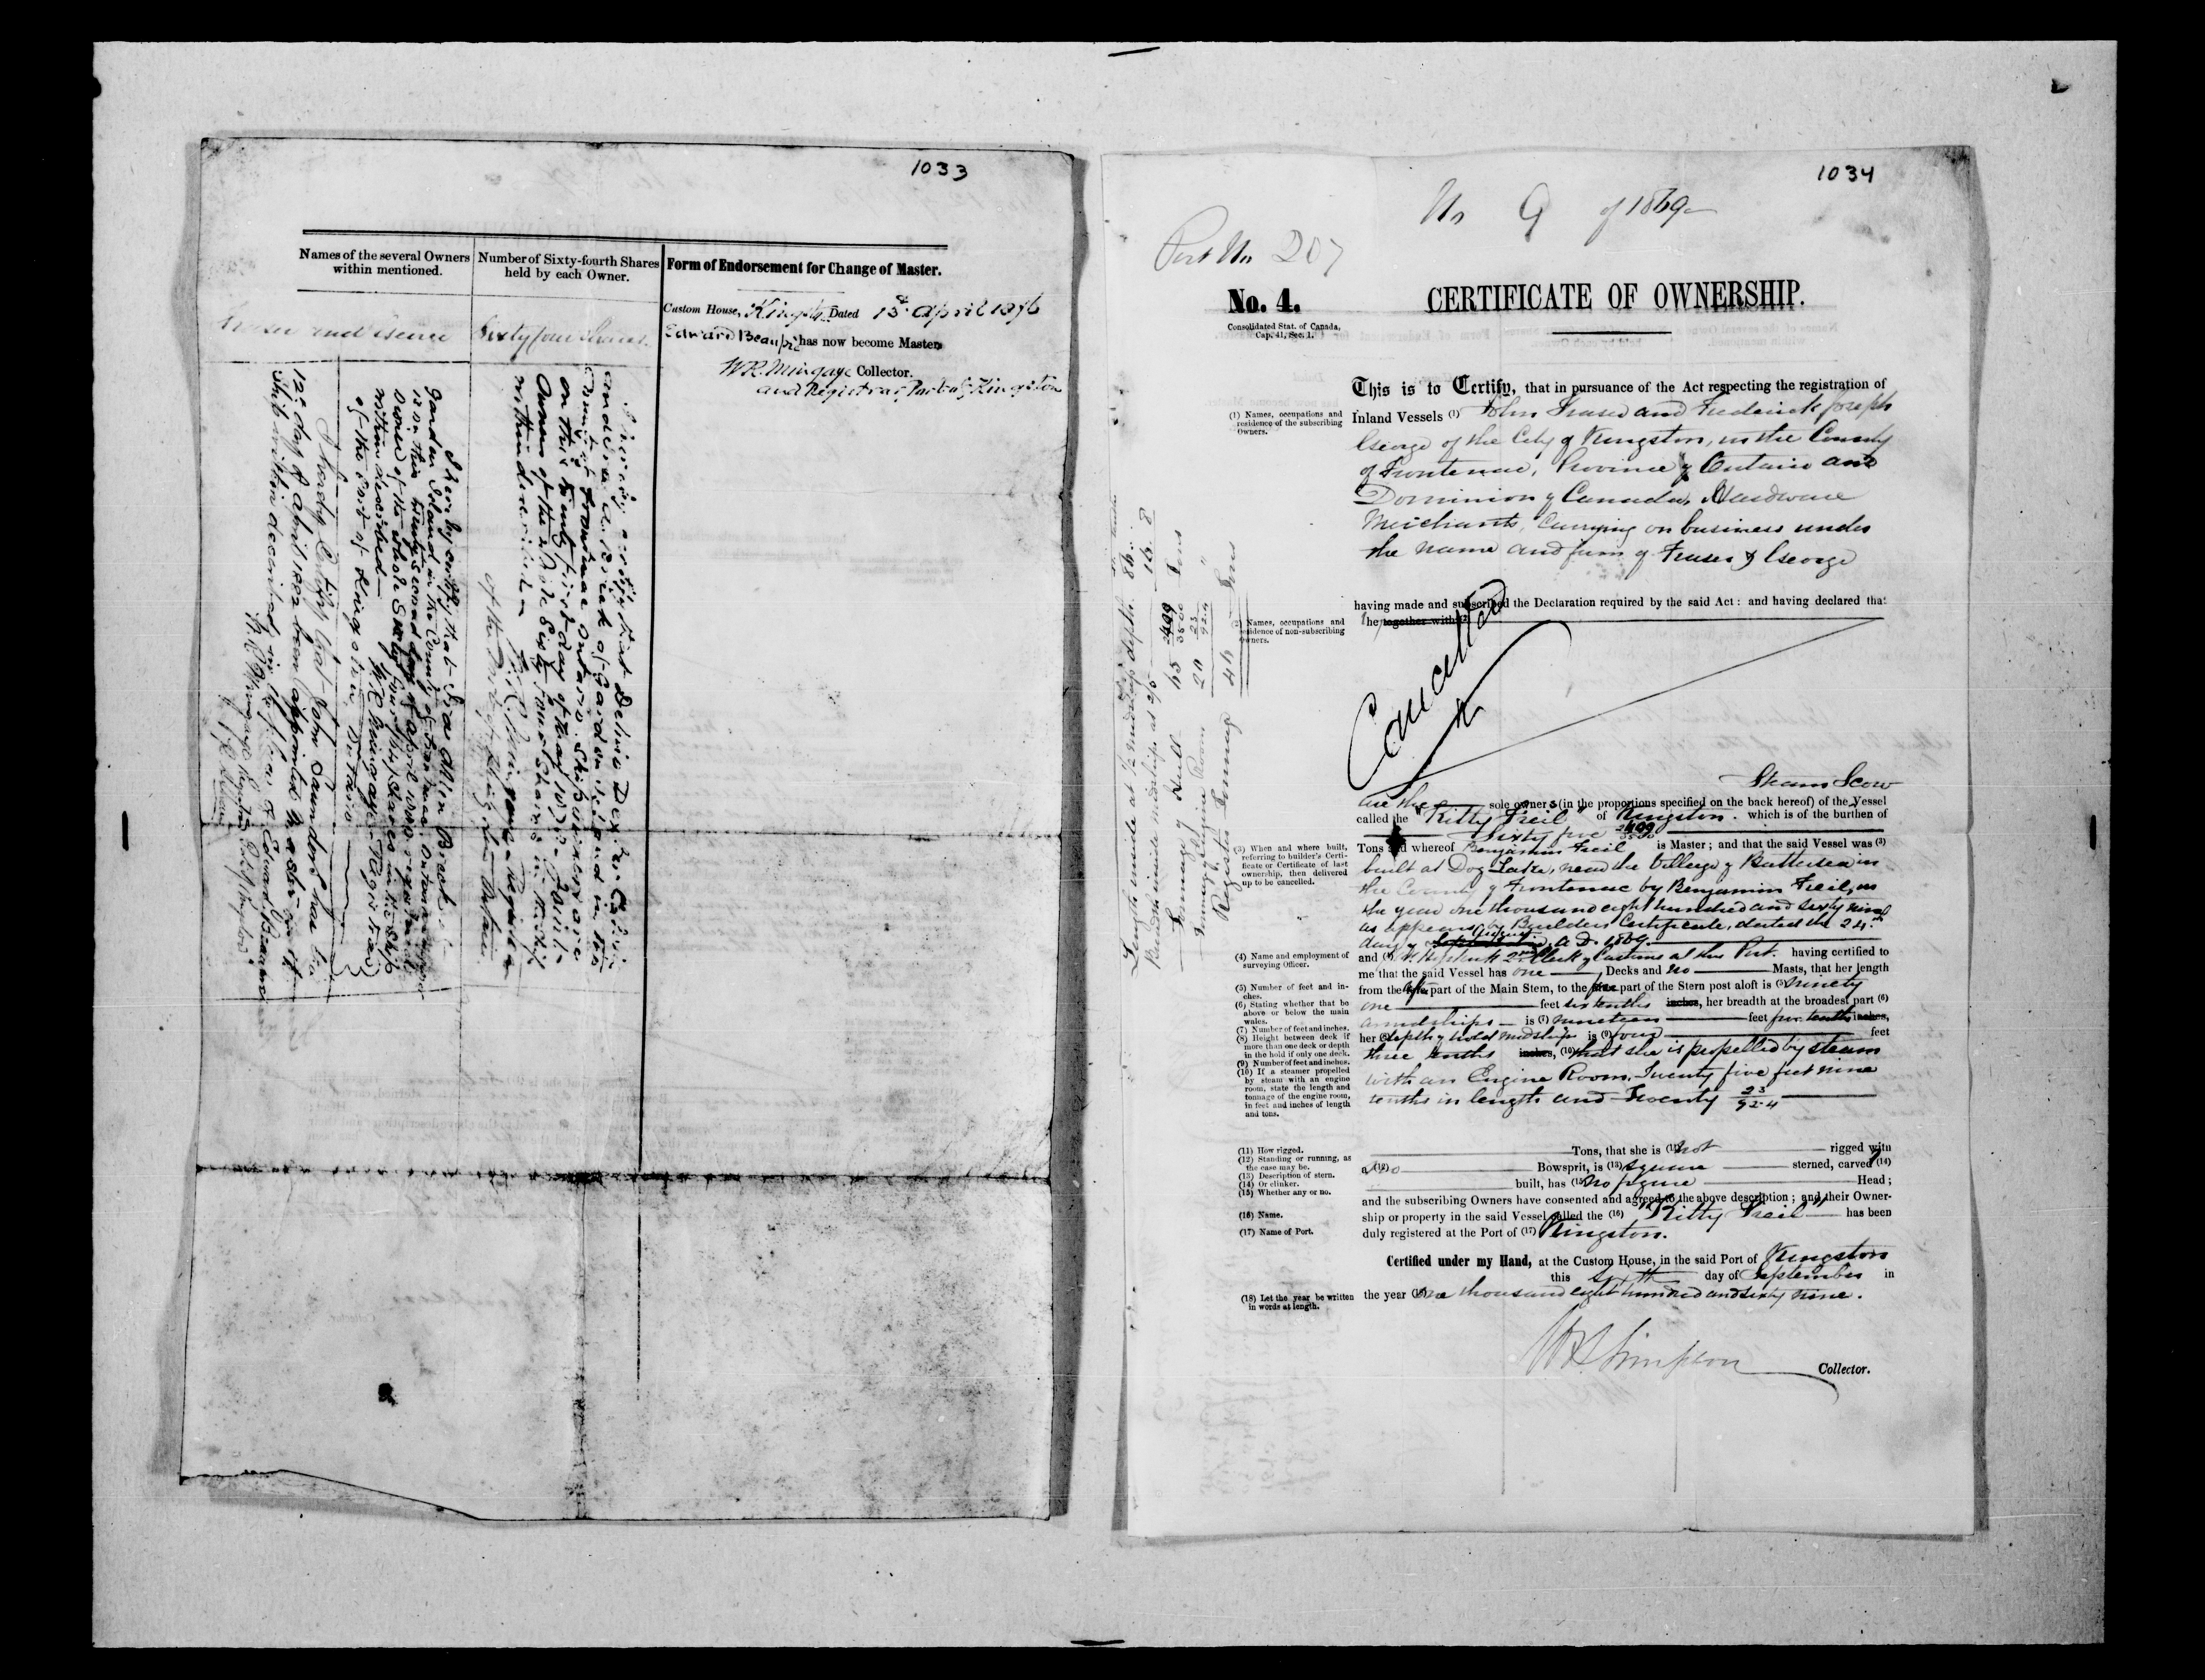 1033
Names of the several Owners
within mentioned.
Number of Sixty-fourth Shares
held by each Owner.
Form of Endorsement for Change of Master.
Fraser and George
Sixty four Shares.
Custom House, Kingston Dated 18 April 1876
Edward Beaupré has now become Master
W.R. Mingaye Collector.
and Registrar, Port of Kingston
I hereby certify that Delino Dexter Calvin
and Ira A. Breck of Garden Island in the
County of Frontenac Ontario Ship
on this twenty first day of
Owners of the whole Sixty four Shares in the Ship
within described
W.R. Mingaye Registrar
of the Port of Kingston Ontario
I hereby certify that Ira Allen Breck of
Garden Island in the County of Frontenac Ontario
is on this twenty second day of April 1880 registered
owner of the whole Sixty four (64) Shares in the Ship
within described
W R Mingaye Registrar
of the Port of Kingston, Ontario
I hereby Certify that John Saunders has this
12th day of April 1882 been appointed Master of
Ship within described in the place of Edward Beaupré
W R Mingaye
1034
No 9 of 1869
Port No 207
No. 4.
Consolidated Stat. of Canada,
Cap. 41, Sec. 1.
CERTIFICATE OF OWNERSHIP.
This is to Certify, that in pursuance of the Act respecting the registration of
(1) Names, occupations and
residence of the subscribing
Owners.
Inland Vessels (1) John Fraser and Frederick Joseph
George of the City of Kingston, in the County
of Frontenac, Province of Ontario and
Dominion of Canada, Hardware
Merchants, Carrying on business under
the name and firm of Fraser & George
having made and subscribed the Declaration required by the said Act: and having declared that
(2) Names, occupations and
residence of non-subscribing
Owners.
They together with (2)
Cancelled
Length inside at 1/2 midship depth 86
Breadth inside midship at 2/5 16.8
Tonnage of Hull 65 2409/3500 Tons
Tonnage of Engine Room 20 23/92.4 "
Register Tonnage 46 Tons
Steam Scow
are the sole owners (in the proportions specified on the back hereof) of the Vessel
called the "Kitty Freil" of Kingston. which is of the burthen of
Sixty five 2409/3500
(3) When and where built,
referring to builder's Certi-
ficate or Certificate of last
ownership, then delivered
up to be cancelled.
Tons and whereof Benjamin Freil is Master; and that the said Vessel was (3)
built at Dog Lake, near the Village of Battersea in
the County of Frontenac by Benjamin Freil, in
the year one thousand eight hundred and sixty nine
as appears by Builders Certificate, dated the 24th
day of August A.D. 1869
(4) Name and employment of
surveying Officer.
and (4) 2nd Clerk of Customs at this Port. having certified to
me that the said Vessel has one Decks and no Masts, that her length
(5) Number of feet and in-
ches.
from the after part of the Main Stem, to the fore part of the Stern post aloft is (5) ninety
(6) Stating whether that be
above or below the main
wales.
one feet six tenths inches, her breadth at the broadest part (6)
(7) Number of feet and inches.
amidships is (7) nineteen feet five tenths inches,
(8) Height between deck if
more than one deck or depth
in the hold if only one deck.
her (8) depth of hold midships is (9) four feet
(9) Number of feet and inches.
three tenths inches, (10) that she is propelled by steam
(10) If a steamer propelled
by steam with an engine
room, state the length and
tonnage of the engine room,
in feet and inches of length
and tons.
with an Engine Room, Twenty five feet nine
tenths in length and Twenty 23/92.4
(11) How rigged.
Tons, that she is (11) not rigged with
(12) Standing or running, as
the case may be.
(13) Description of stern.
a (12) no Bowsprit, is (13) square sterned, carvel (14)
(14) Or clinker.
(15) Whether any or no.
built, has (15) no figure Head;
and the subscribing Owners have consented and agreed to the above description; and their Owner-
(16) Name.
ship or property in the said Vessel called the (16) "Kitty Freil" has been
(17) Name of Port.
duly registered at the Port of (17) Kingston.
Certified under my Hand, at the Custom House, in the said Port of Kingston
this Sixth day of September in
(18) Let the year be written
in words at length.
the year (18) One thousand eight hundred and sixty nine.
W B Simpson
Collector.